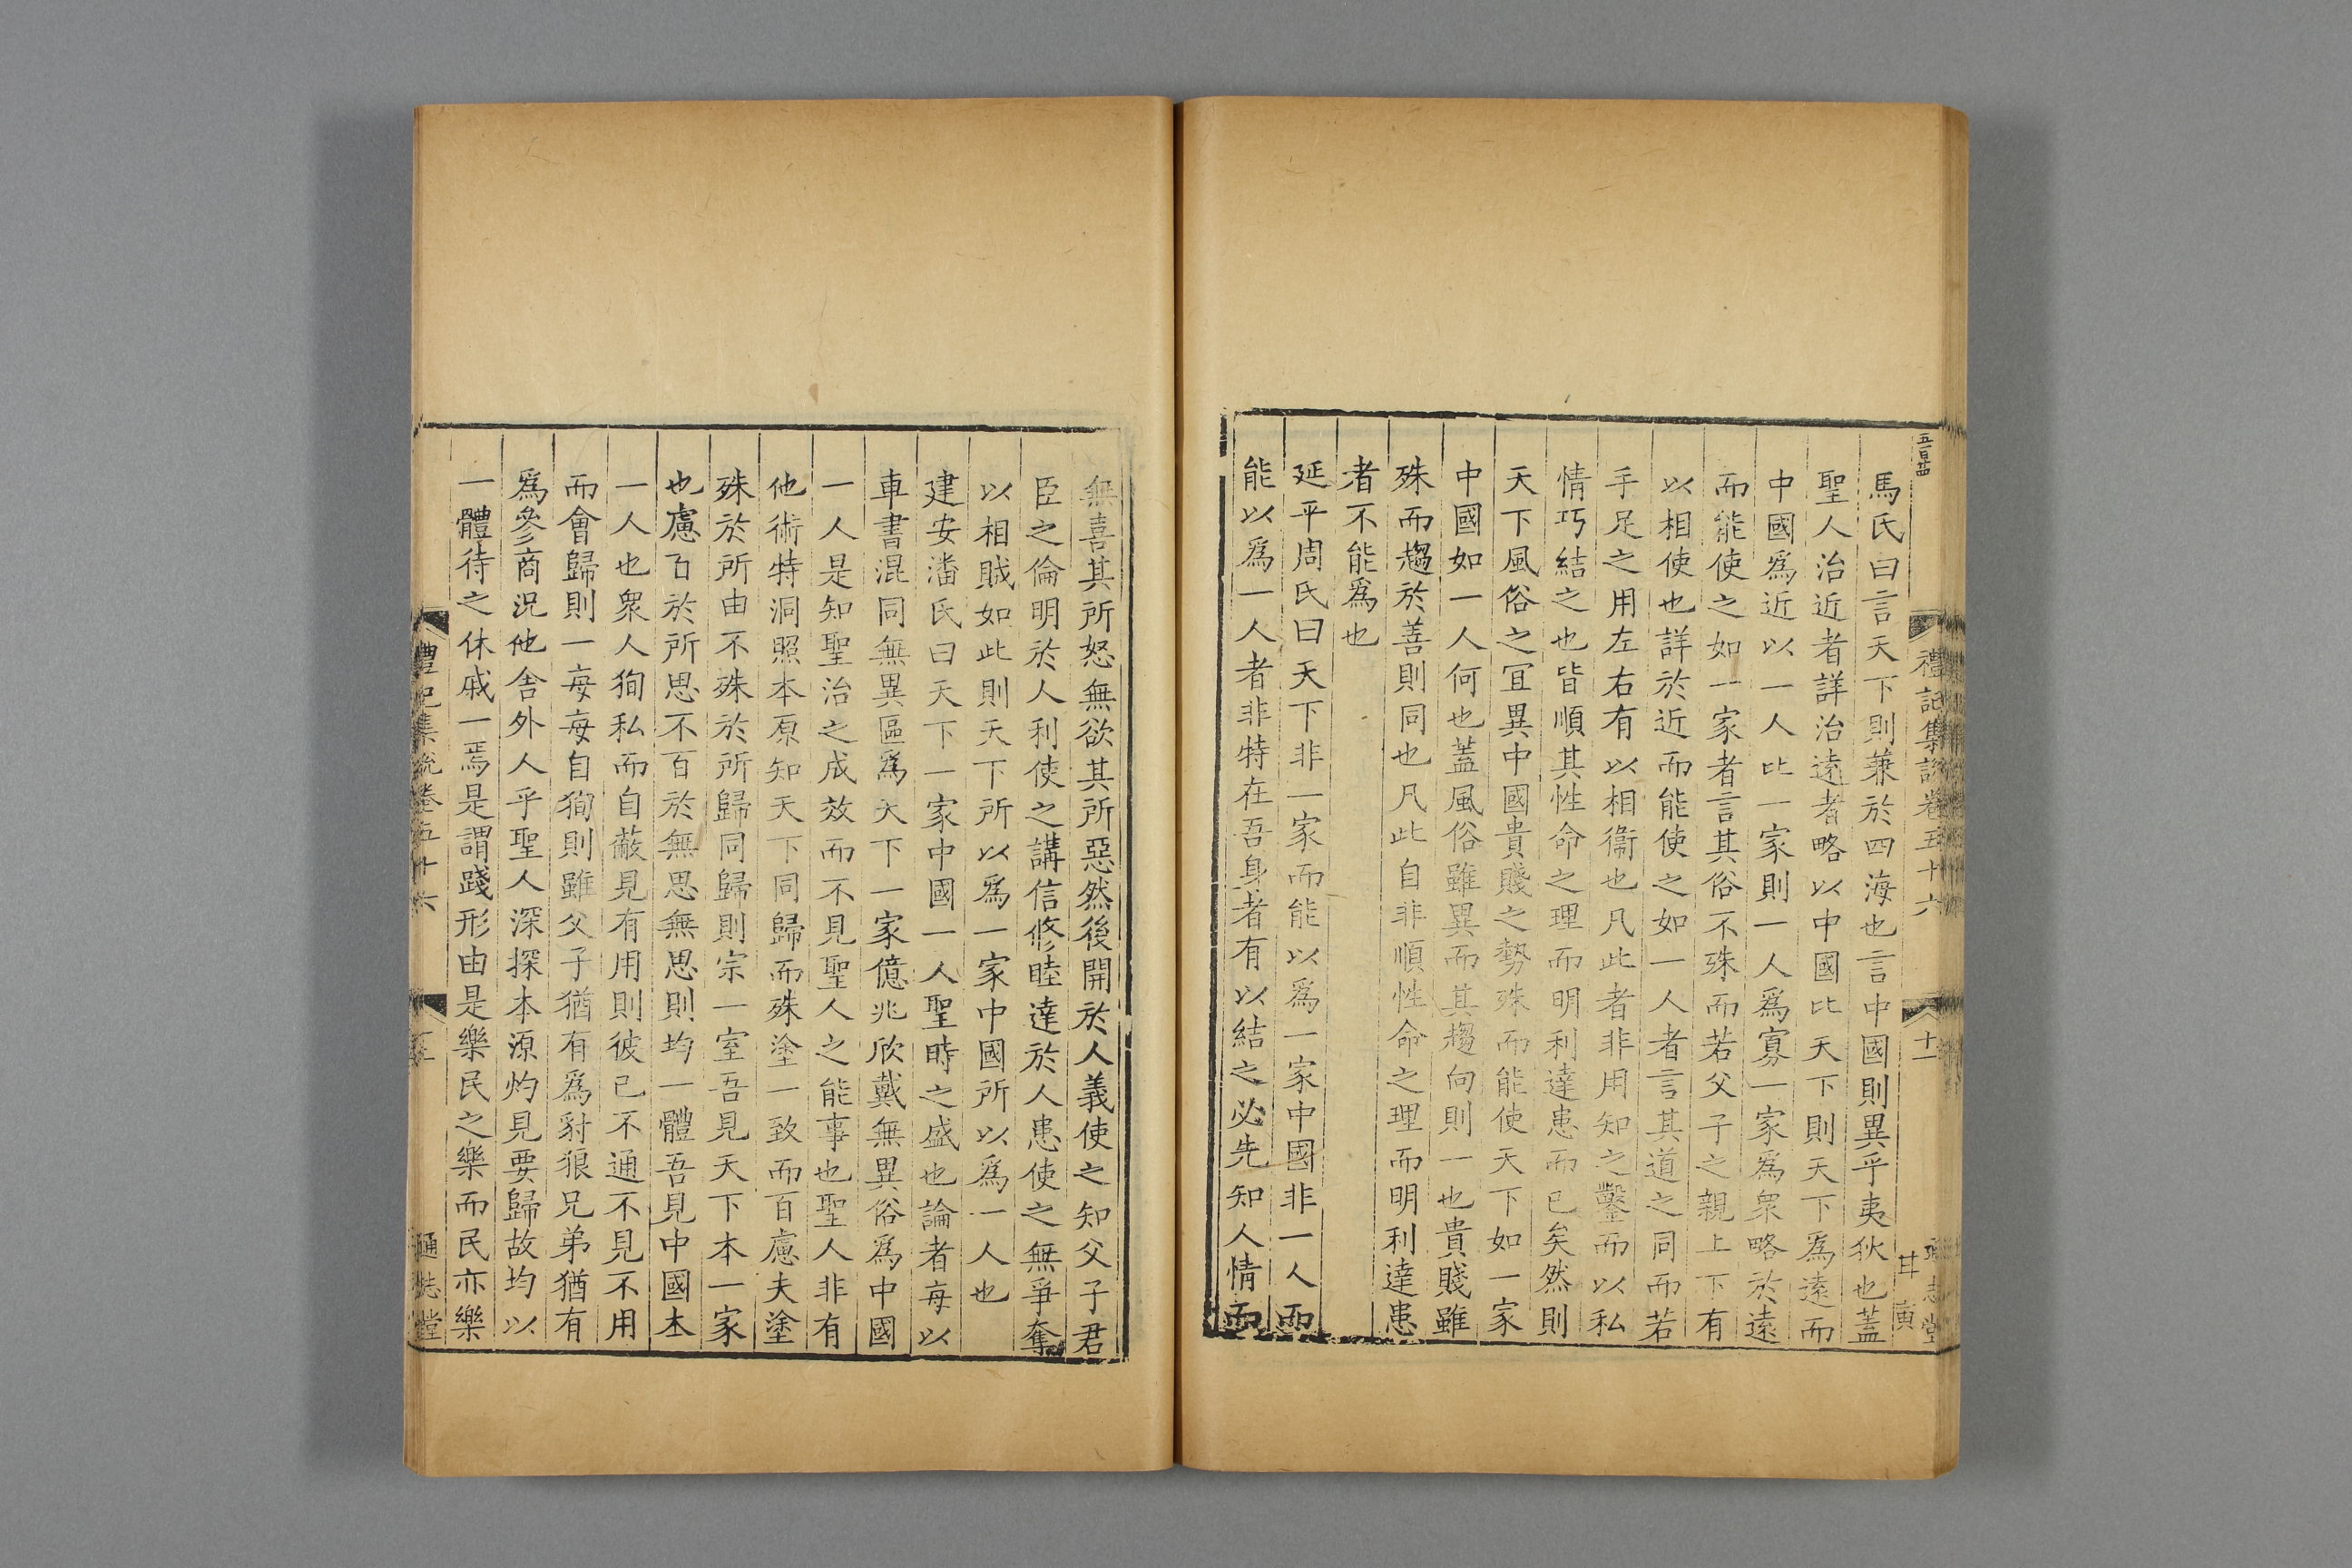 五百廿四
禮記集說卷五十六
十一
通志堂
甘寅
馬氏曰言天下則兼於四海也言中國則異乎夷狄也蓋
聖人治近者詳治遠者略以中國比天下則天下爲遠而
中國爲近以一人比一家則一人爲寡一家爲衆略於遠
而能使之如一家者言其俗不殊而若父子之親上下有
以相使也詳於近而能使之如一人者言其道之同而若
手足之用左右有以相衞也凡此者非用知之鑿而以私
情巧結之也皆順其性命之理而明利達患而已矣然則
天下風俗之冝異中國貴賤之勢殊而能使天下如一家
中國如一人何也蓋風俗雖異而其趨向則一也貴賤雖
殊而趨於善則同也凡此自非順性命之理而明利達患
者不能爲也
延平周氏曰天下非一家而能以爲一家中國非一人而
能以爲一人者非特在吾身者有以結之必先知人情而
無喜其所怒無欲其所惡然後開於人義使之知父子君
臣之倫明於人利使之講信修睦達於人患使之無爭奪
以相賊如此則天下所以爲一家中國所以爲一人也
建安潘氏曰天下一家中國一人聖時之盛也論者每以
車書混同無異區爲天下一家億兆欣戴無異俗爲中國
一人是知聖治之成效而不見聖人之能事也聖人非有
他術特洞照本原知天下同歸而殊塗一致而百慮夫塗
殊於所由不殊於所歸同歸則宗一室吾見天下本一家
也慮百於所思不百於無思無思則均一體吾見中國本
一人也衆人狥私而自蔽見有用則彼已不通不見不用
而會歸則一每每自狥則雖父子猶有爲豺狼兄弟猶有
爲參商况他舍外人乎聖人深探本源灼見要歸故均以
一體待之休戚一焉是謂踐形由是樂民之樂而民亦樂
禮記集說卷五十六
通志堂